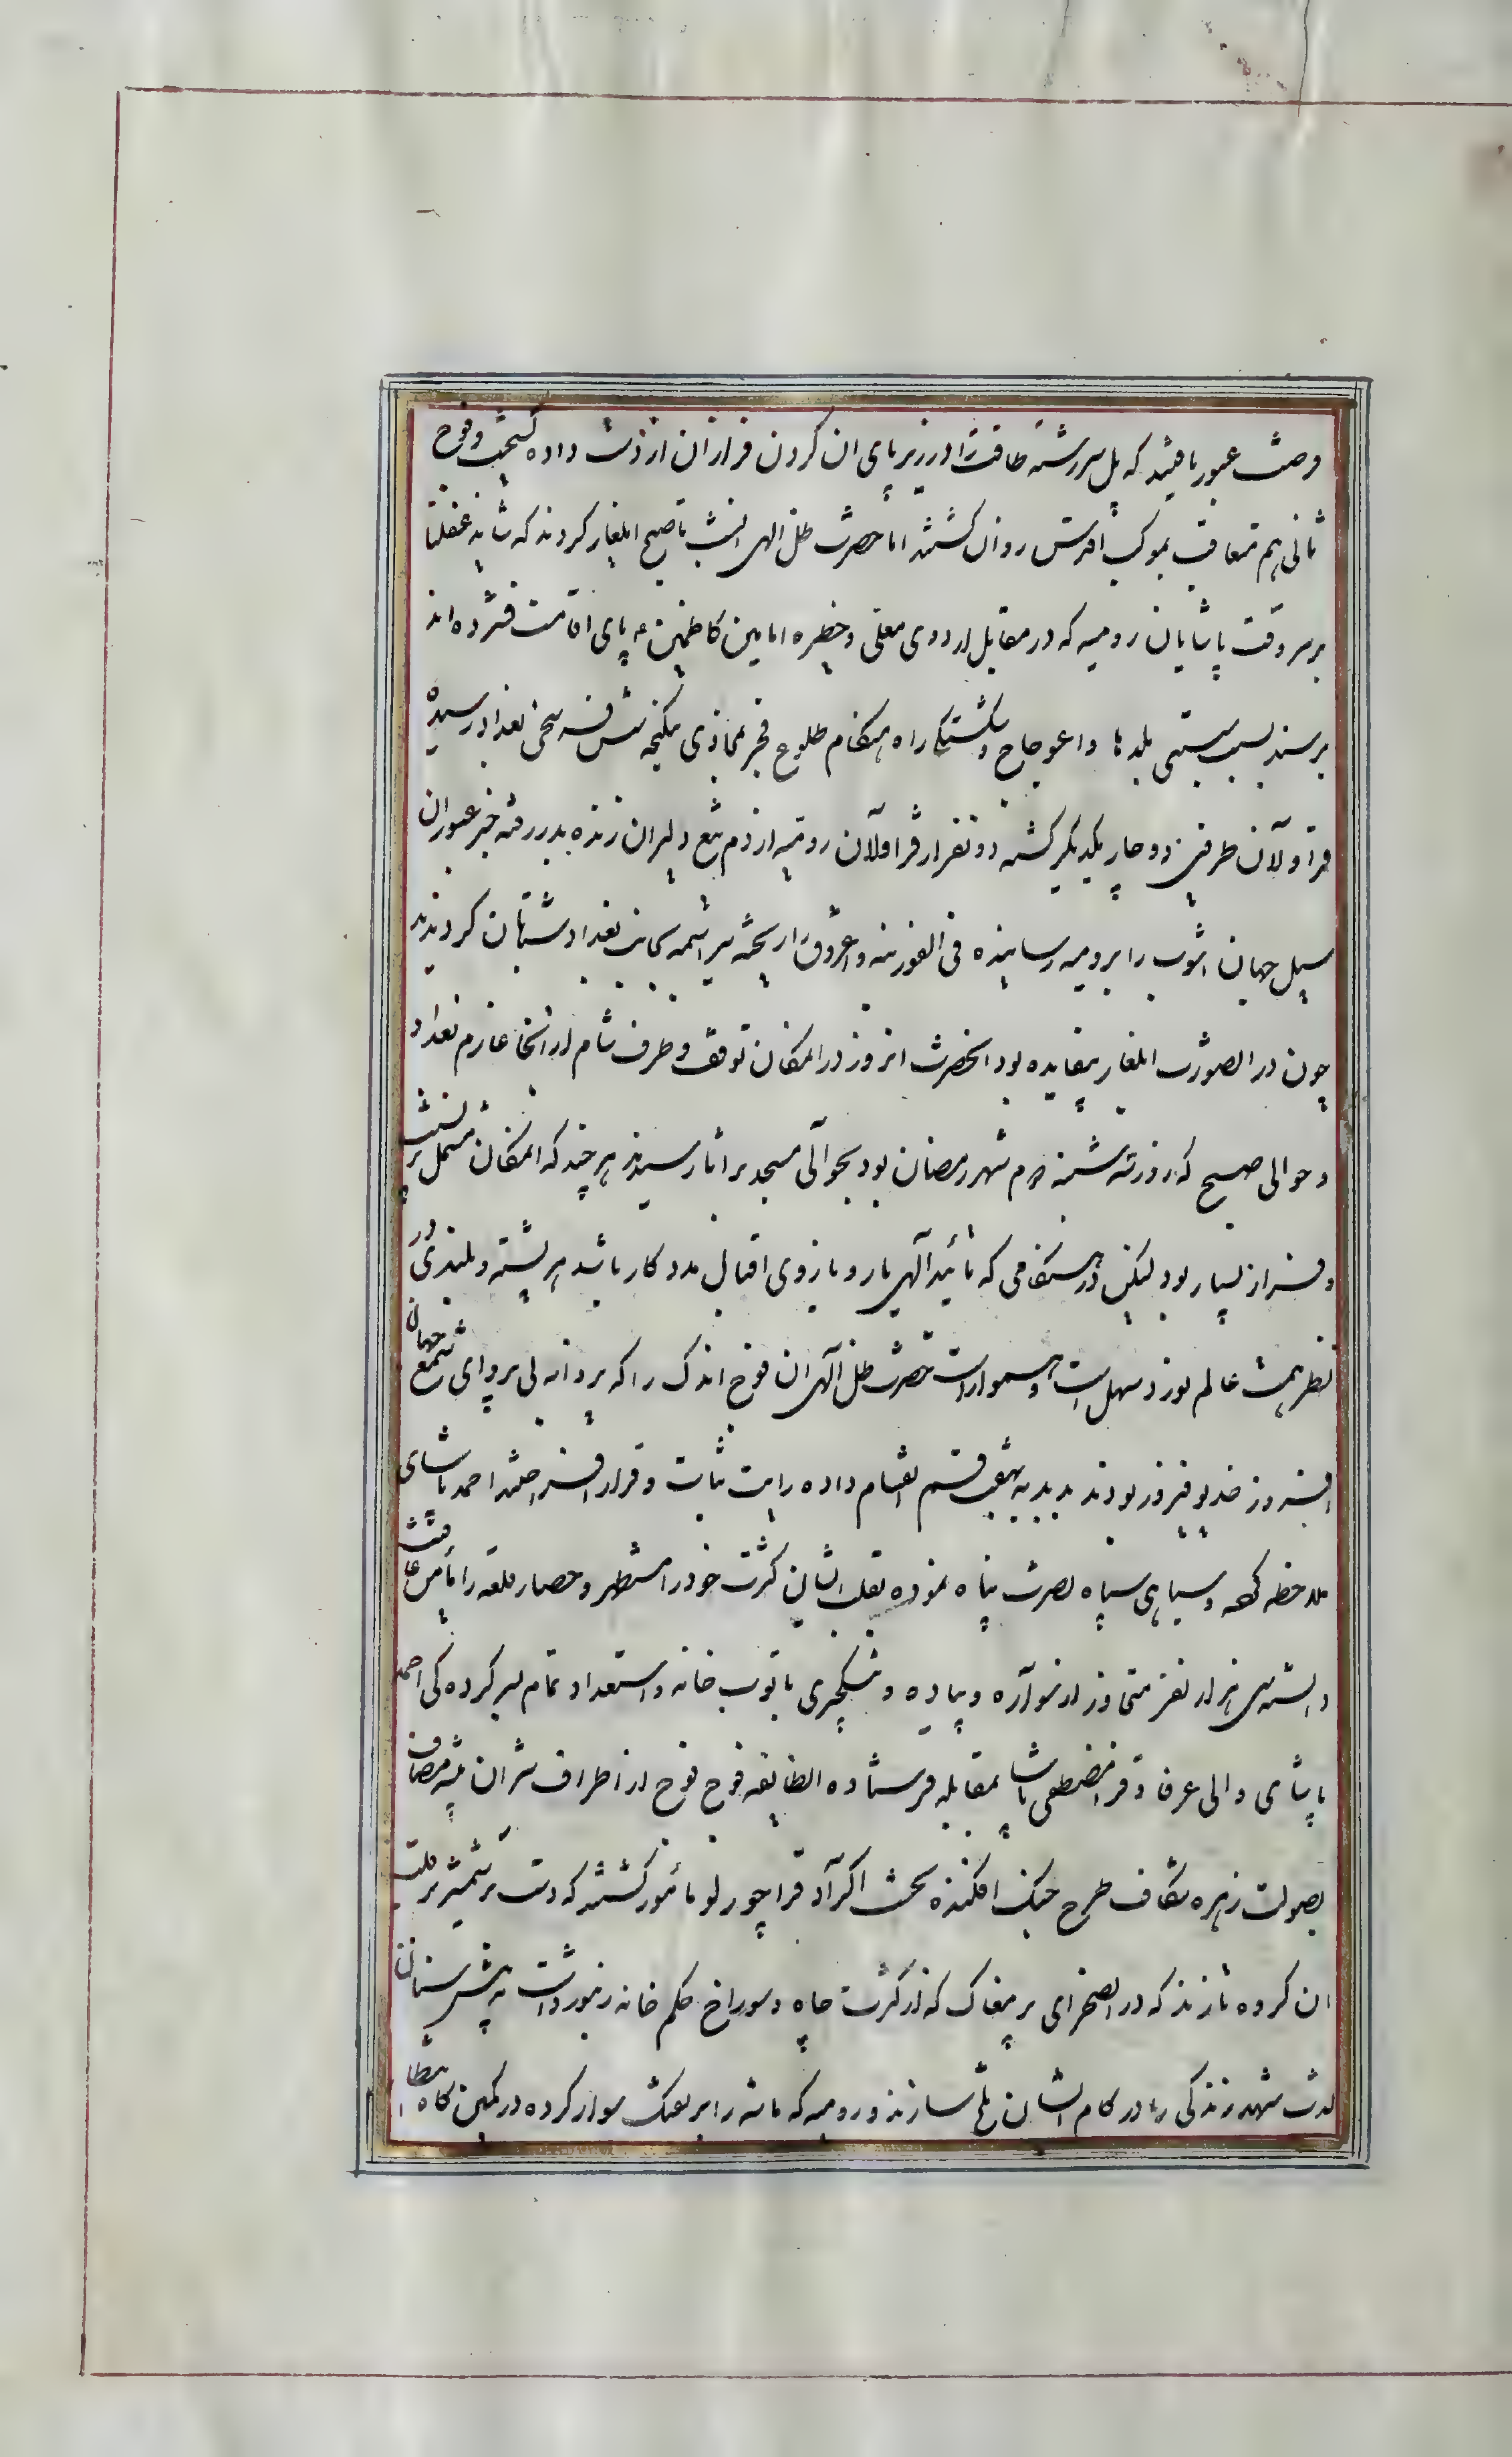 فرصت عبور یافتند که پل سررشته طاقت را در زیر پای آن گردن فرازان از دست داده گسیخت و فوج
ثانی هم متعاقب بموکب اقدس روان گشتند اما حضرت ظل الهی آنشب تا صبح ایلغار کردند که شاید غفلتا
بر سر وقت پاشایان رومیه که در مقابل اردوی معلی و حظیره امامین کاظمین ع پای اقامت فشرده اند
برسند بسبب سستی بلدها و اعوجاج و شکستگی راه هنگام طلوع فجر بمحاذی ینگیجه شش فرسخی بغداد رسیده
قراولان طرفین دوچار یکدیگر گشته دو نفر از قراولان رومیه از دم تیغ دلیران زنده بدر رفته خبر عبور آن
سیل جهان آشوب را برومیه رسانیده فی الفور بنه و اغروق را ریخته سراسیمه بجانب بغداد شتابان گردیدند
چون در اینصورت ایلغار بیفایده بود آنحضرت آنروز در آنمکان توقف و طرف شام از آنجا عازم بغداد
و حوالی صبح که روز سه شنبه شهر رمضان بود بحوالی مسجد براثا رسیدند هر چند که آنمکان مشتمل بر نشیب
و فراز بسیار بود لیکن در هنگامی که تائید الهی یار و بازوی اقبال مددکار باشد هر پشته و بلندی در
نظر همت عالم نورد سهل است و هموار است حضرت ظل الهی آن فوج اندک را که پروانه بی پروای شمع جهان
افروز خدیو فیروز بودند بدبدبه بهفت قسم انقسام داده رایت ثبات و قرار افراختند احمد پاشای
ملاحظه کمی و سیاهی سپاه نصرت پناه نموده بقلت ایشان کثرت خود را مستظهر و حصار قلعه را مأمن عافیت
دانسته سی هزار نفر متجاوز از سواره و پیاده و ینگچری با توپ خانه و استعداد تمام بسرکردگی احمد
پاشای والی عرفا و قرا مصطفی پاشا بمقابله فرستاده آنطایفه فوج فوج از اطراف شیران بیشه مصاف
بصولت زهره شکاف طرح جنگ افکنده نخست اکراد قراچورلو مأمور گشتند که دست بر شمشیر بر قلب
آن گروه تازند که در آن صحرای پر مغاک که از کثرت چاه و سوراخ حکم خانه زنبور داشت به نیش سنان
لذت شهد زندگی را در کام ایشان تلخ سازند و رومیه که ماشه را بر تفنگ سوار کرده در کمین گاه